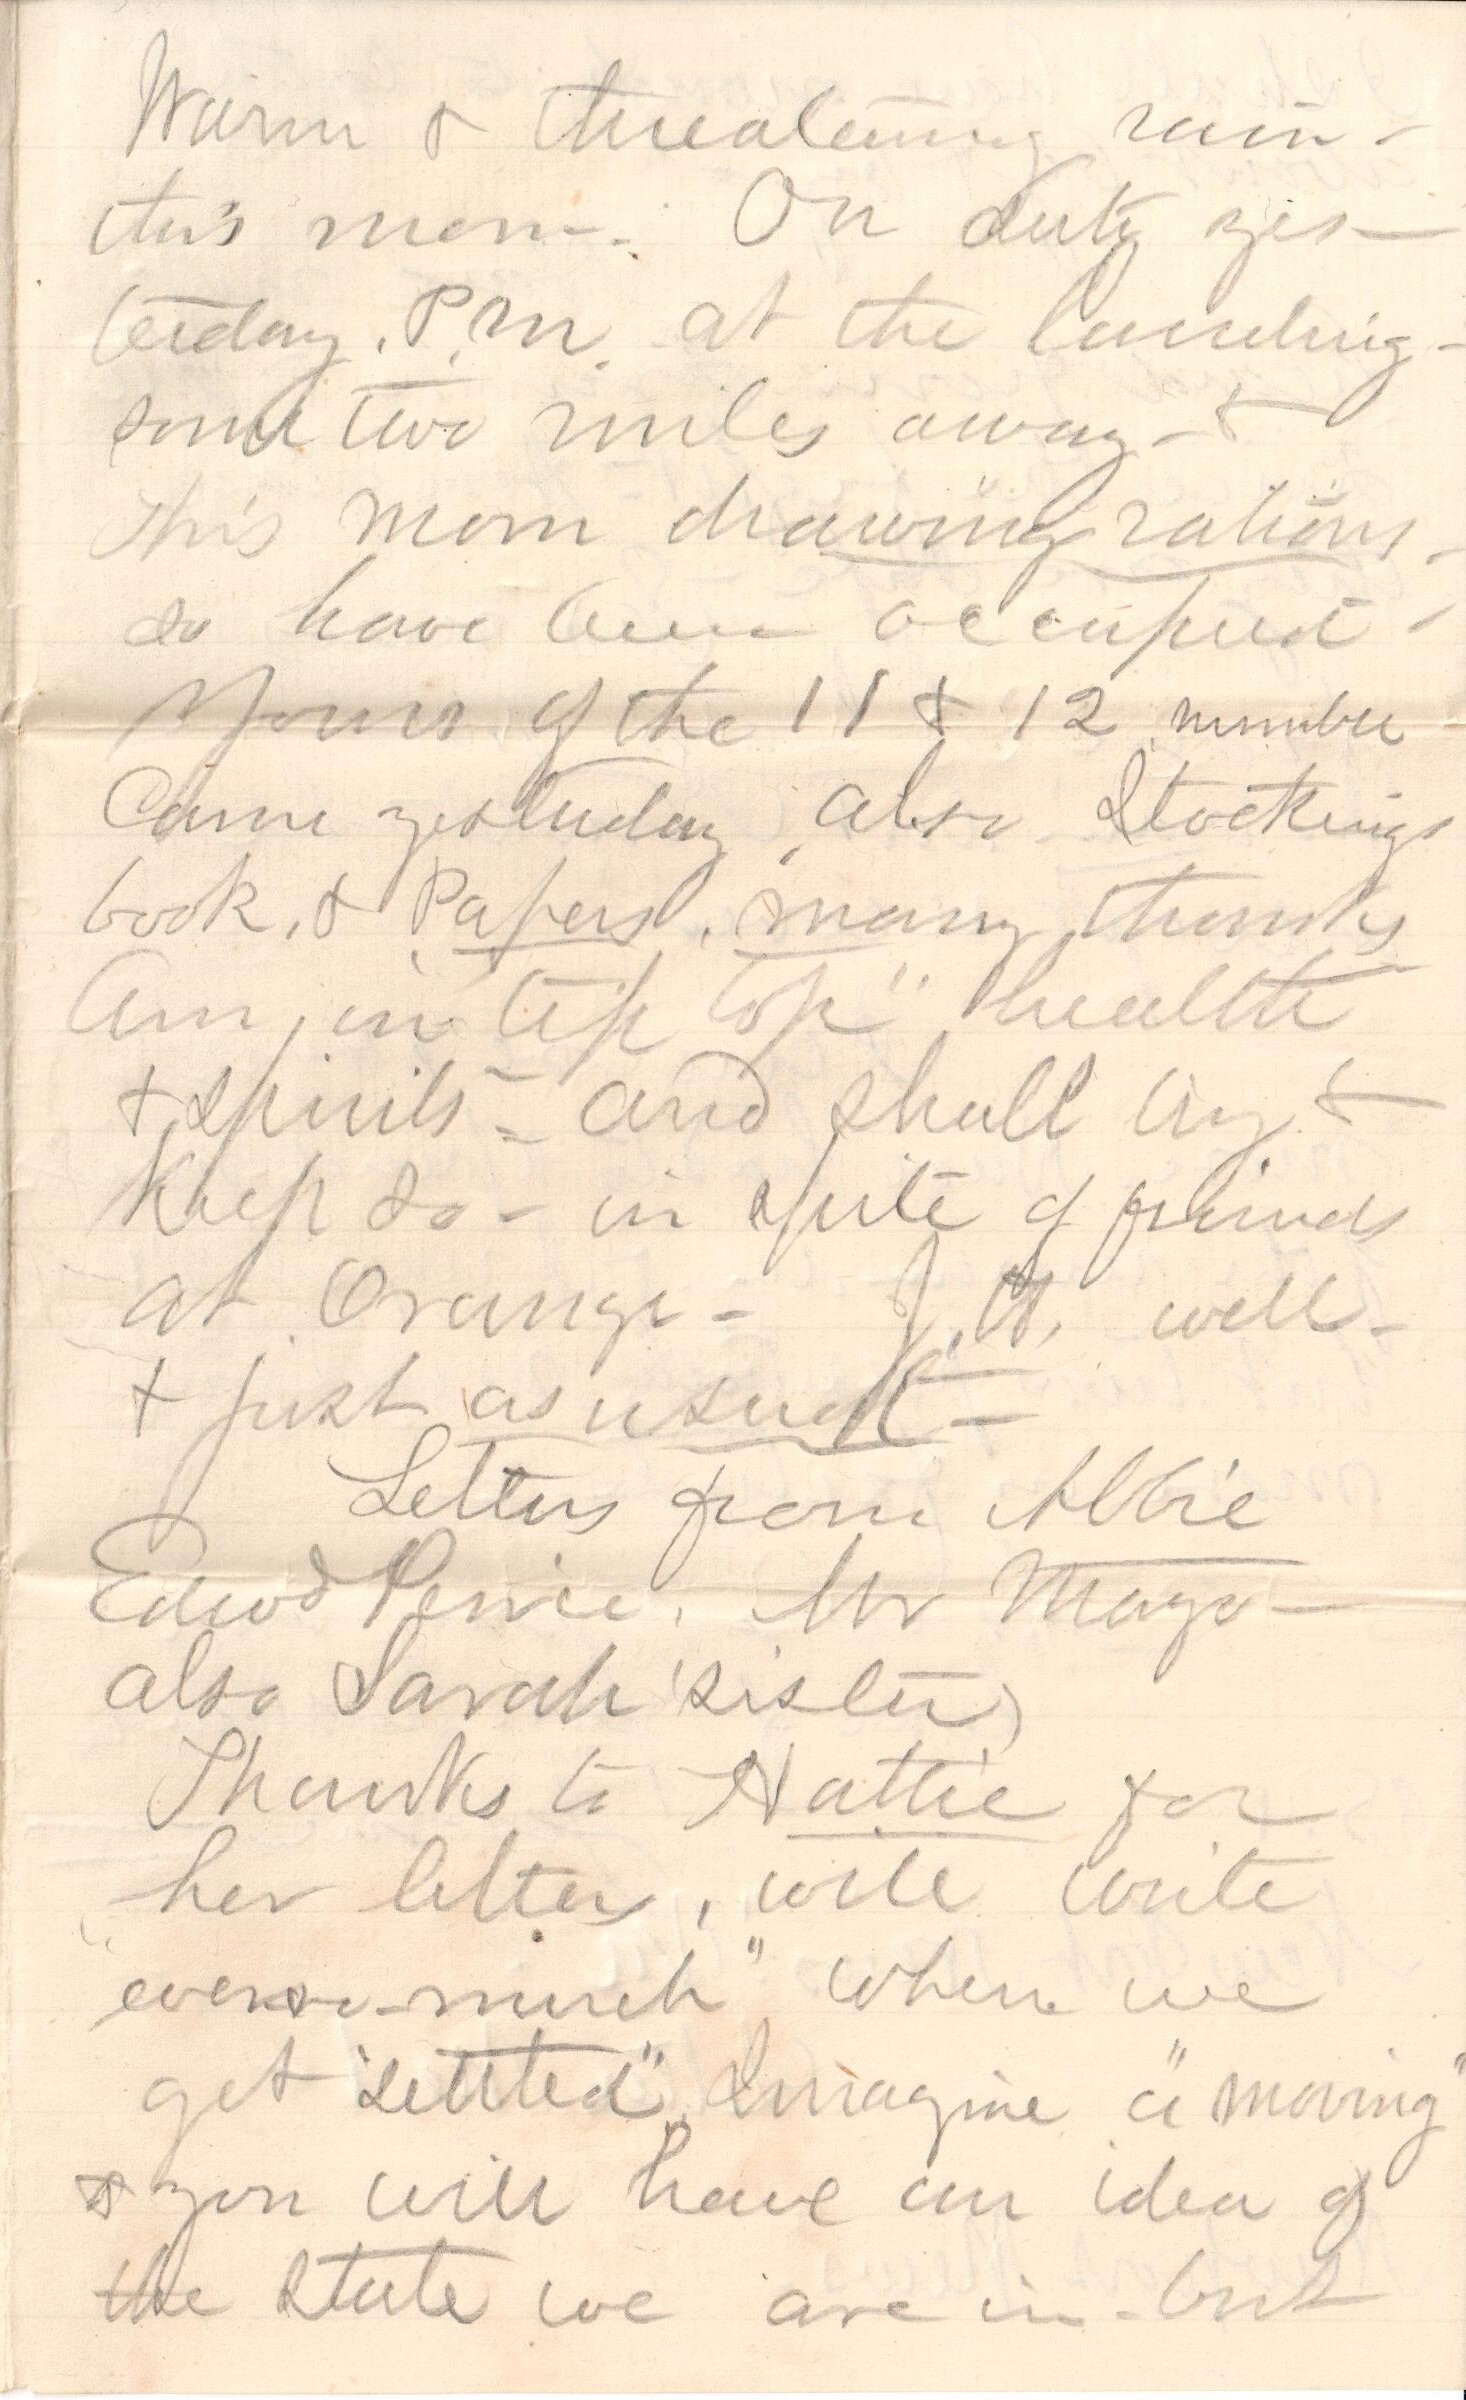 Warm & threatening rain -
this morn -. On duty yes-
terday. P.M. at the landing -
some two miles away - &
this morn drawing rations -
so have been occupied -
Yours of the 11 & 12 number
Came yesterday, also Stockings
book, & Papers, many thanks
Am, in "tip top" health
& spirits - and shall try &
Keep so - in spite of friends
at Orange - J. H. well -
& just as usual -
Letters from Abbie
Edwd Peirce. Mr Mayo -
also Sarah (sister)
Thanks to Hattie for
her letter, will write
"ever so much" when we
get "settled". Imagine a "moving"
& you will have an idea of
the state we are in - but